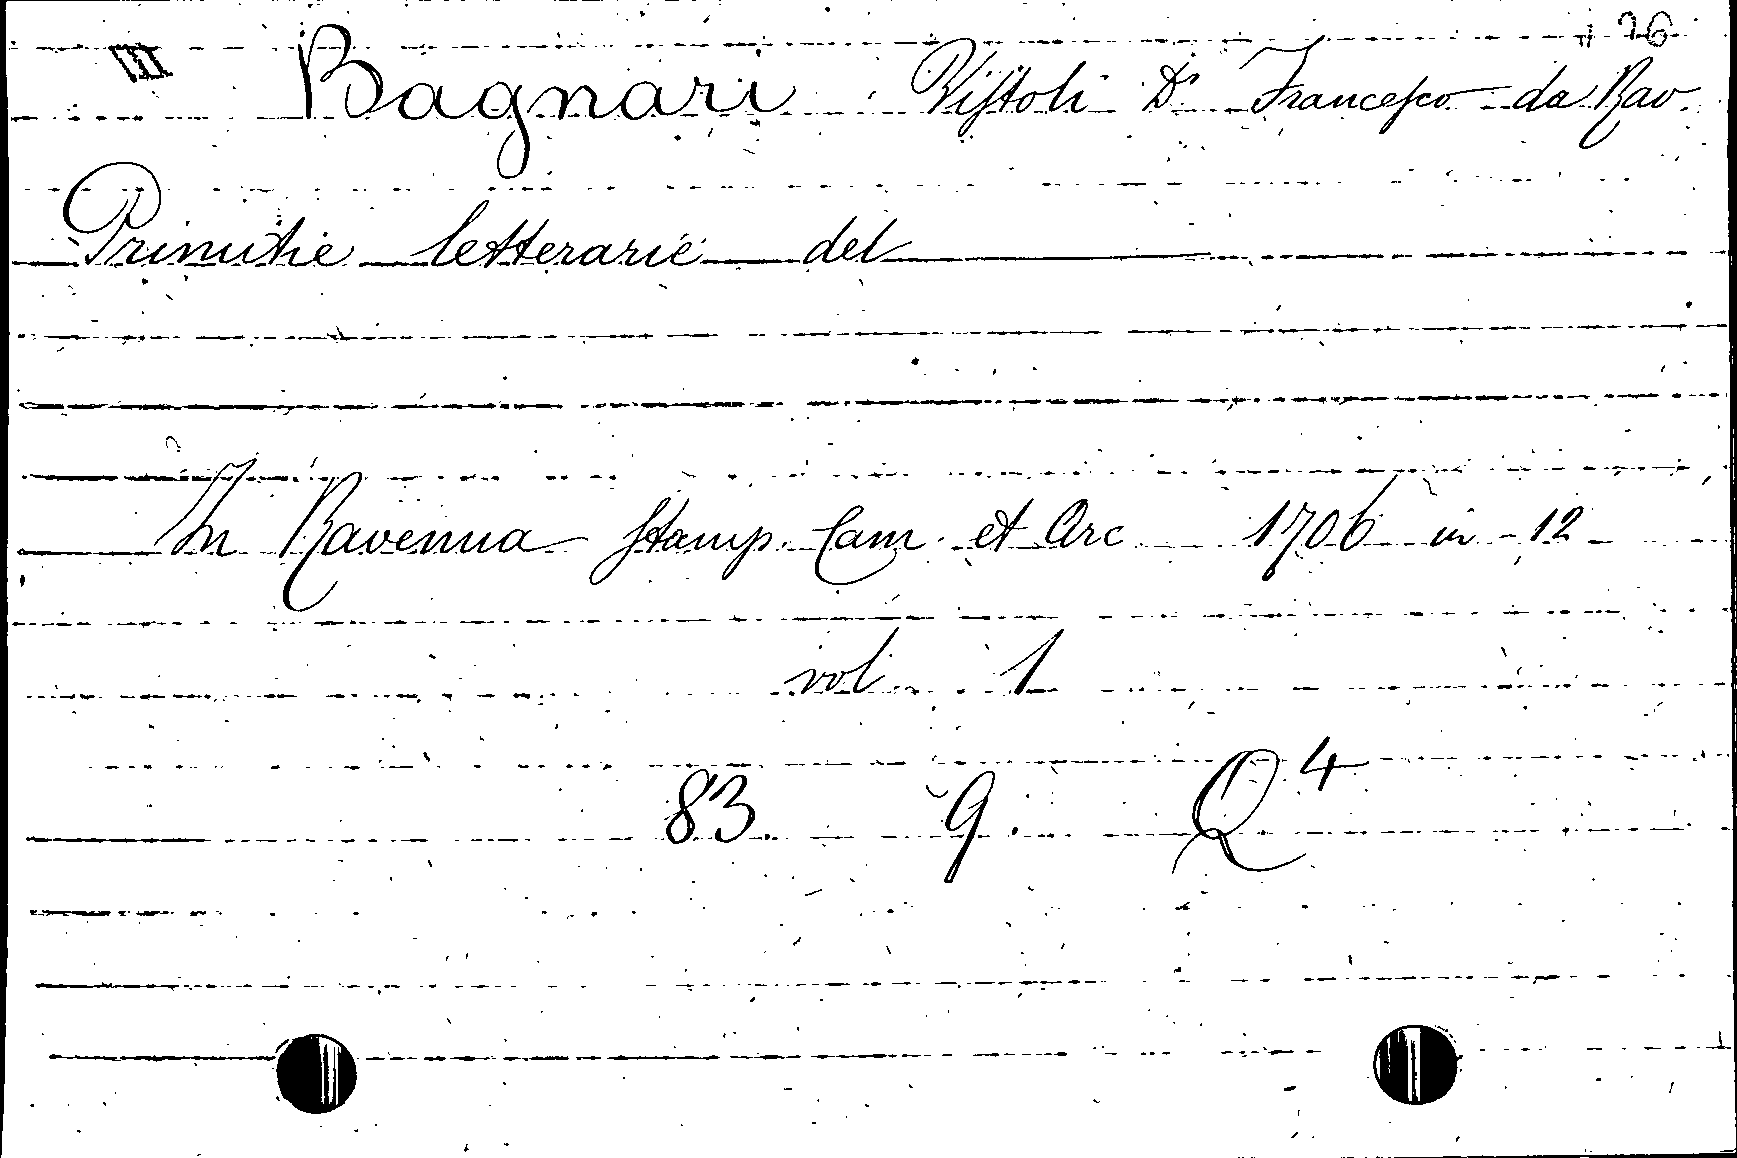 III Bagnari Viſtoli Dr Franceſco da Rav.
Primitie letterarie del
In Ravenna ſtamp. Cam. et Arc 1706 in 12
vol 1
83. 9. Q4